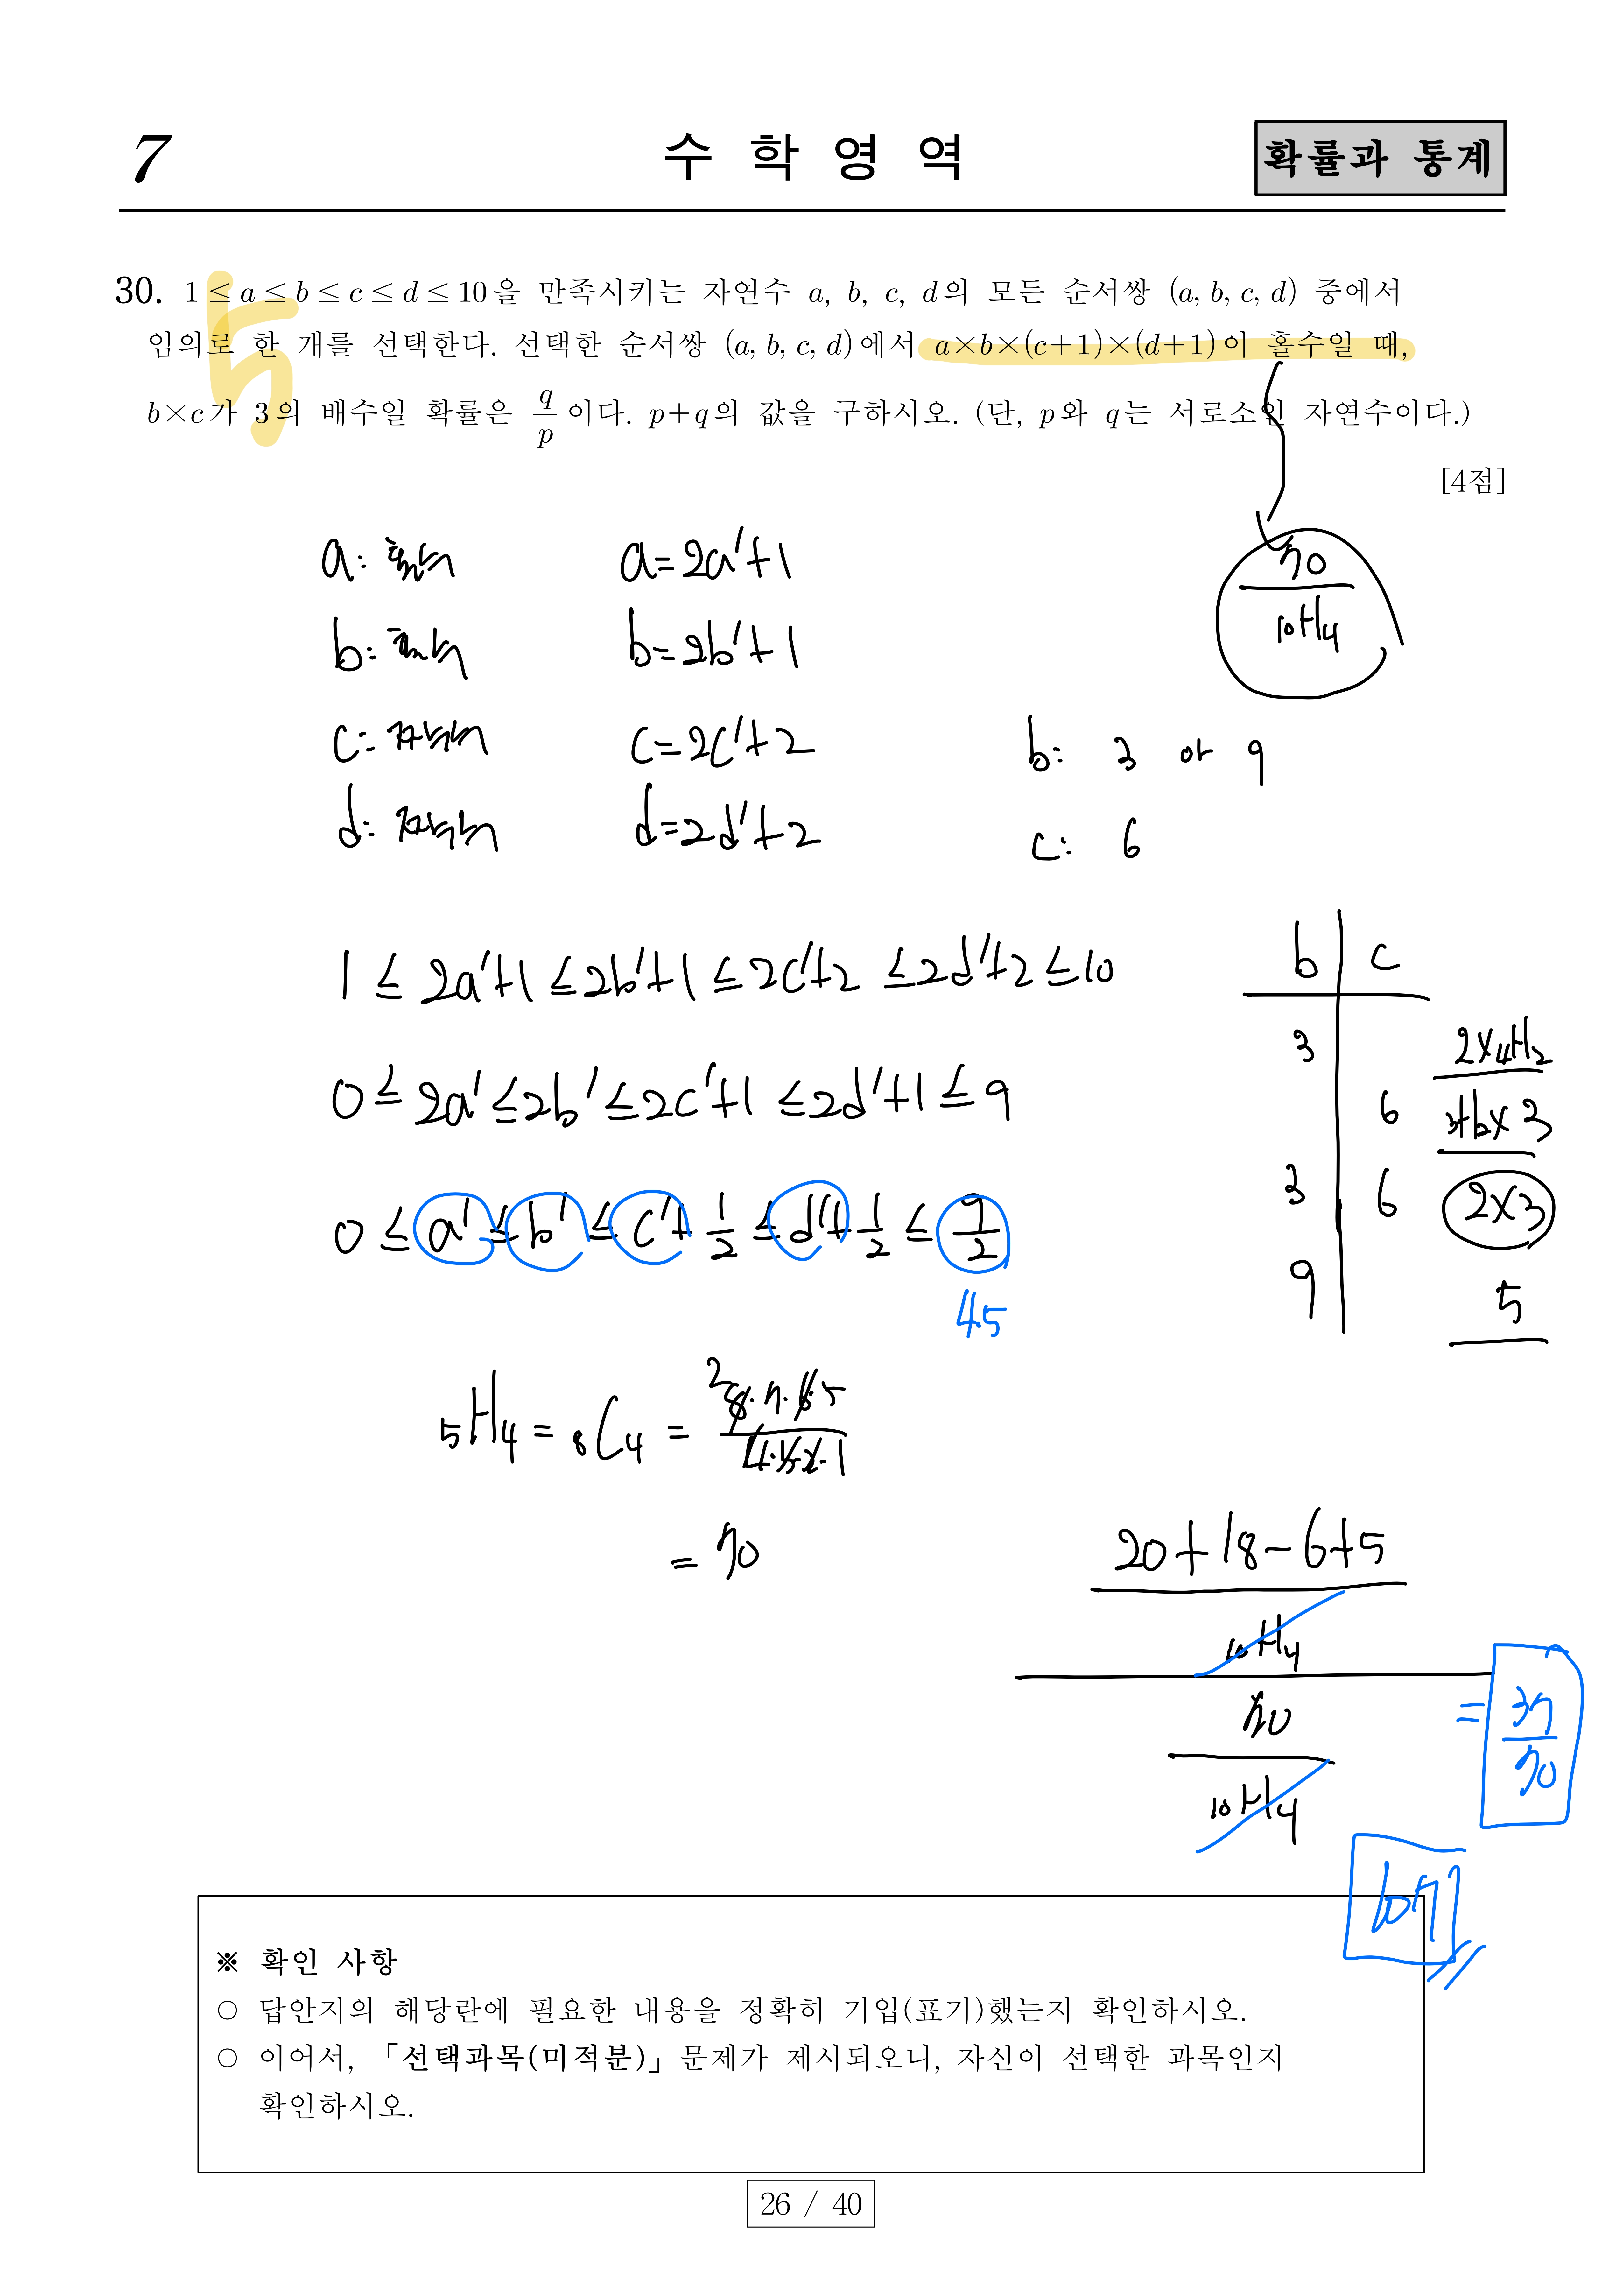 7
수 학 영 역
확률과 통계
30. 1 ≤ a ≤ b ≤ c ≤ d ≤ 10을 만족시키는 자연수 a, b, c, d의 모든 순서쌍 (a, b, c, d) 중에서
임의로 한 개를 선택한다. 선택한 순서쌍 (a, b, c, d)에서 a×b×(c+1)×(d+1)이 홀수일 때,
b×c가 3의 배수일 확률은 q/p 이다. p+q의 값을 구하시오. (단, p와 q는 서로소인 자연수이다.)
[4점]
70/10H4
a: 홀수 a=2a'+1
b: 홀수 b=2b'+1
c: 짝수 c=2c'+2
d: 짝수 d=2d'+2
b: 3 or 9
c: 6
1 ≤ 2a'+1 ≤ 2b'+1 ≤ 2c'+2 ≤ 2d'+2 ≤ 10
0 ≤ 2a' ≤ 2b' ≤ 2c'+1 ≤ 2d'+1 ≤ 9
0 ≤ a' ≤ b' ≤ c'+1/2 ≤ d'+1/2 ≤ 9/2
4.5
b c
3 2×4H2
6 3H2×3
3 6 2×3
9 5
5H4 = 8C4 = 8·7·6·5/4·3·2·1
= 70
20+18-6+5
10H4
70
10H4
= 37/70
107
※ 확인 사항
○ 답안지의 해당란에 필요한 내용을 정확히 기입(표기)했는지 확인하시오.
○ 이어서, 「선택과목(미적분)」 문제가 제시되오니, 자신이 선택한 과목인지
확인하시오.
26 / 40